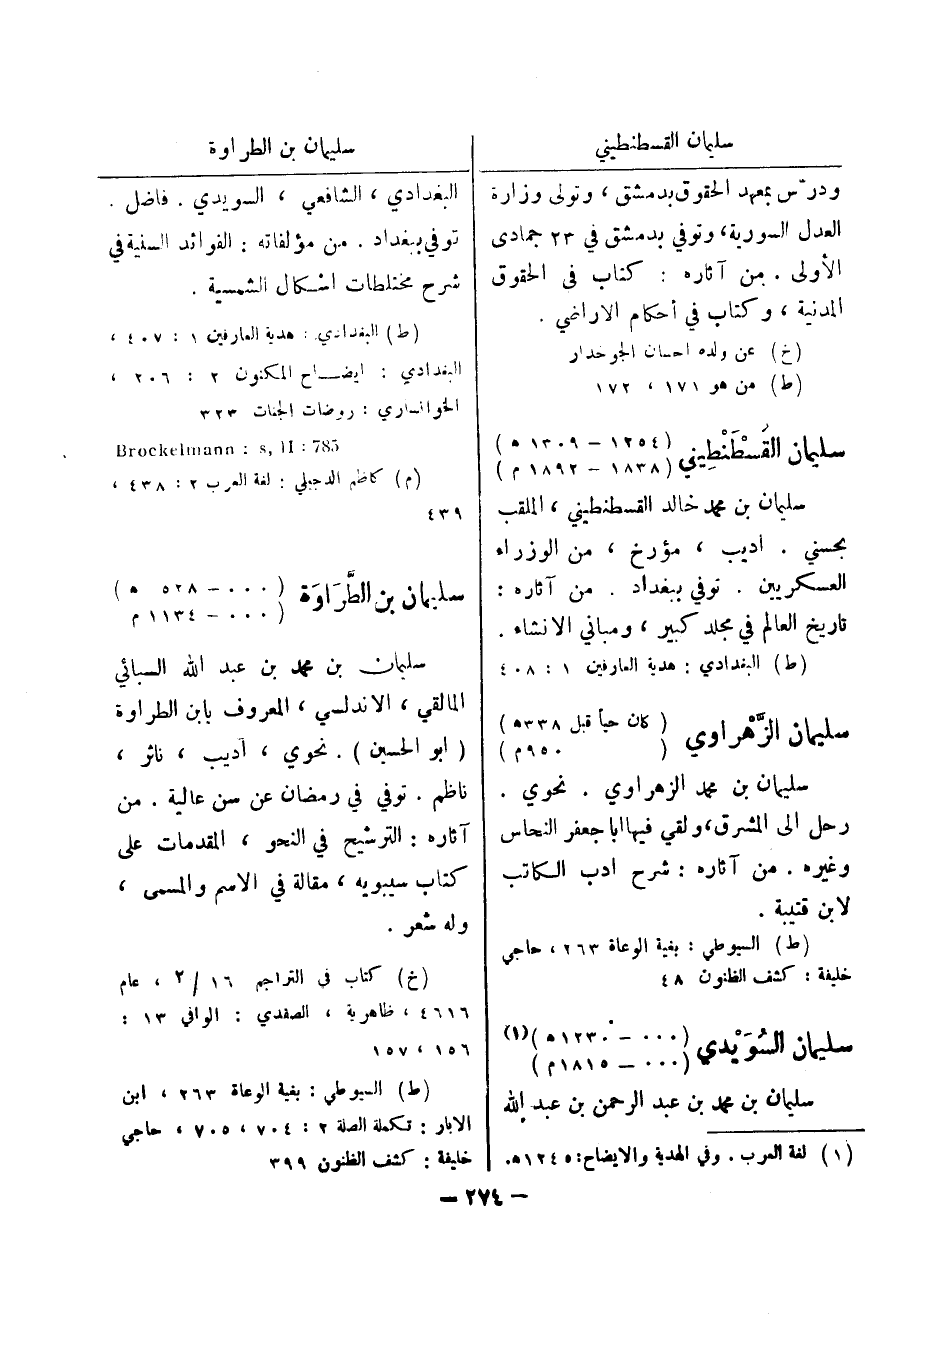 سليمان القسطنطيني
ودرّس بمعهد الحقوق بدمشق ، وتولى وزارة
العدل السورية، وتوفي بدمشق في ٢٣ جمادى
الأولى . من آثاره : كتاب في الحقوق
المدنية ، وكتاب في أحكام الاراضي .
(خ) عن ولده احسان الجوخدار
(ط) من هو ١٧١ ، ١٧٢
سليمان القُسْطَنْطِيني (١٢٥٤ – ١٣٠٩ ه)
(١٨٣٨ – ١٨٩٢ م)
سليمان بن محمد خالد القسطنطيني ، الملقب
بحسني . اديب ، مؤرخ ، من الوزراء
العسكريين . توفي ببغداد . من آثاره :
تاريخ العالم في مجلد كبير ، ومباني الانشاء .
(ط) البغدادي : هدية العارفين ١ : ٤٠٨
سليمان الزَّهْراوي (كان حياً قبل ٣٣٨ه)
(٩٥٠م)
سليمان بن محمد الزهراوي . نحوي .
رحل الى المشرق، ولقي فيها ابا جعفر النحاس
وغيره . من آثاره : شرح ادب الكاتب
لابن قتيبة .
(ط) السيوطي : بغية الوعاة ٢٦٣ ، حاجي
خليفة : كشف الظنون ٤٨
سليمان السُوَيْدي (٠٠٠ – ١٢٣٠ه)(١)
(٠٠٠ – ١٨١٥م)
سليمان بن محمد بن عبد الرحمن بن عبد الله
(١) لغة العرب . وفي الهدية والايضاح: ١٢٤٥ه.
سليمان بن الطراوة
البغدادي ، الشافعي ، السويدي . فاضل .
توفي ببغداد . من مؤلفاته : الفوائد السنية في
شرح مختلطات اشكال الشمسية .
(ط) البغدادي : هدية العارفين ١ : ٤٠٧ ،
البغدادي : ايضاح المكنون ٢ : ٢٠٦ ،
الخوانساري : روضات الجنات ٣٢٣
Brockelmann : s, II : 785
(م) كاظم الدجيلي : لغة العرب ٢ : ٤٣٨ ،
٤٣٩
سليمان بن الطَّرَاوَة (٠٠٠ – ٥٢٨ ه)
(٠٠٠ – ١١٣٤ م)
سليمان بن محمد بن عبد الله السبائي
المالقي ، الاندلسي ، المعروف بابن الطراوة
( ابو الحسين ) . نحوي ، أديب ، ناثر ،
ناظم . توفي في رمضان عن سن عالية . من
آثاره : الترشيح في النحو ، المقدمات على
كتاب سيبويه ، مقالة في الاسم والمسمى ،
وله شعر .
(خ) كتاب في التراجم ١٦ / ٢ ، عام
٤٦١٦ ، ظاهرية ، الصفدي : الوافي ١٣ :
١٥٦ ، ١٥٧
(ط) السيوطي : بغية الوعاة ٢٦٣ ، ابن
الابار : تكملة الصلة ٢ : ٧٠٤ ، ٧٠٥ ، حاجي
خليفة : كشف الظنون ٣٩٩
– ٢٧٤ –